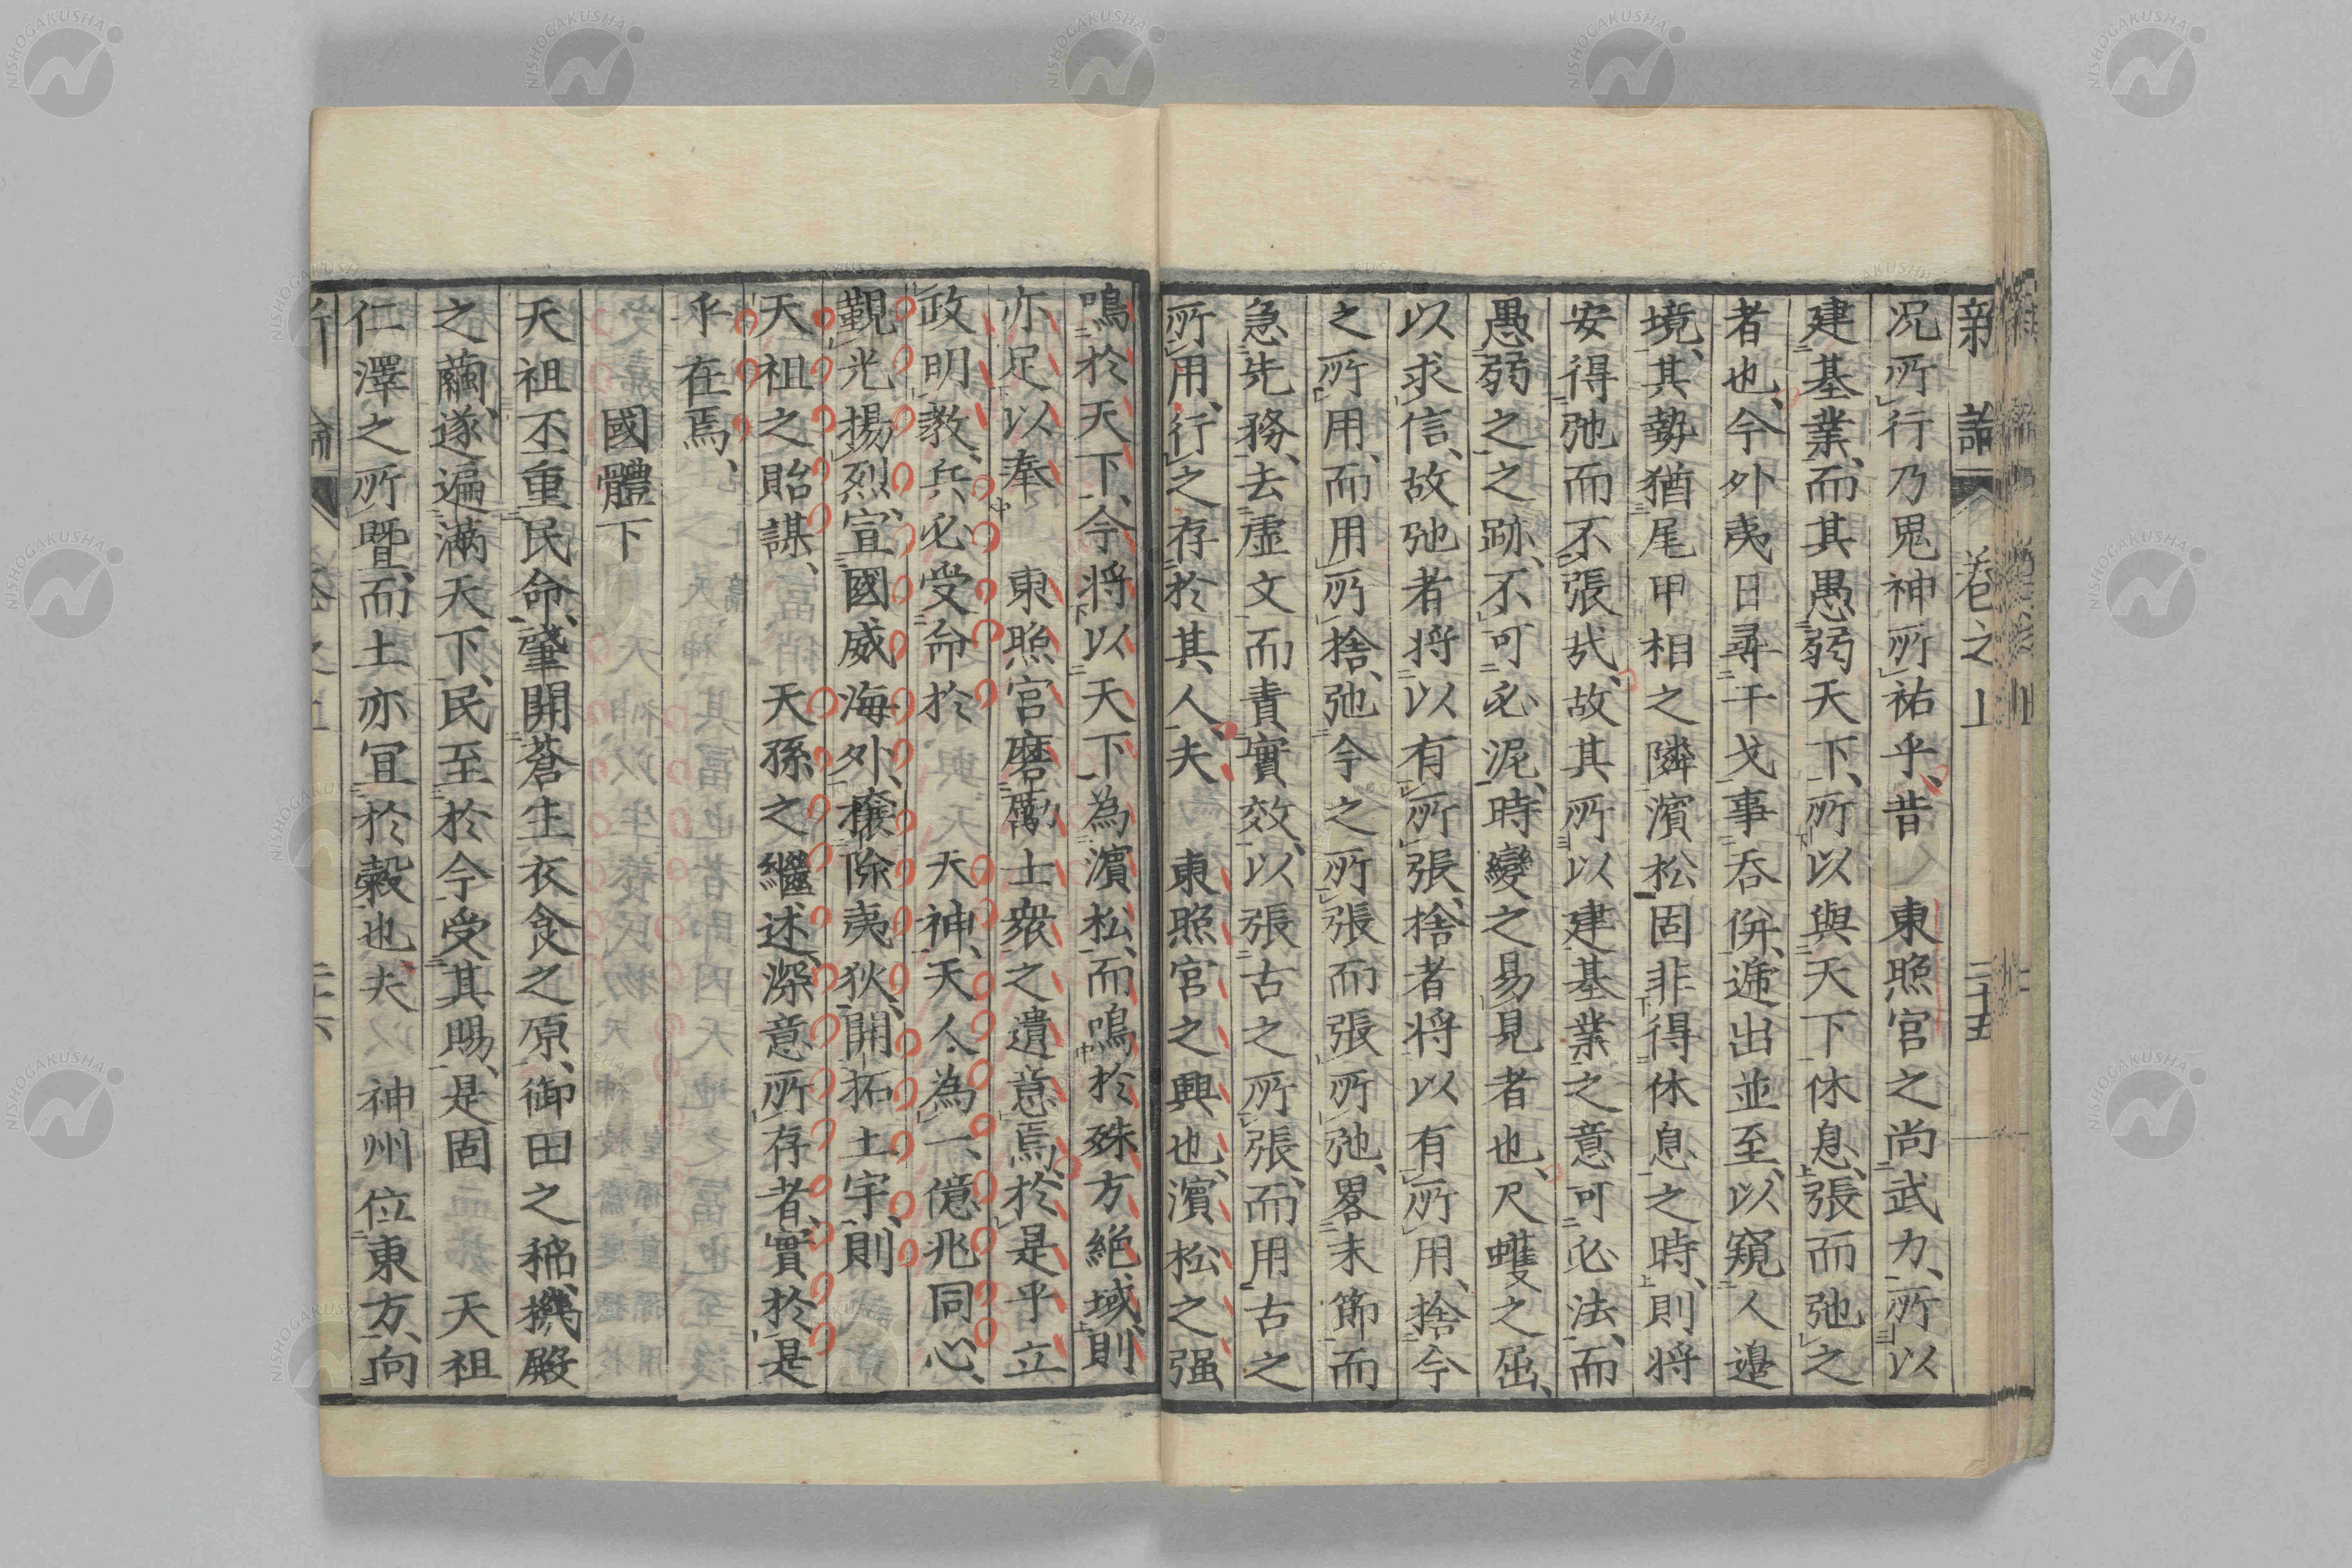 新論 卷之上 二十五
况所行乃鬼神所祐乎、昔 東照宮之尚武力、所以
建基業、而其愚弱天下、所以與天下休息、張而弛之
者也、今外夷日尋干戈事吞併、遞出並至、以窺人邊
境、其勢猶尾甲相之隣濱松、固非得休息之時、則將
安得弛而不張哉、故其所以建基業之意可必法、而
愚弱之之跡、不可必泥、時變之易見者也、尺蠖之屈、
以求信、故弛者將以有所張、捨者將以有所用、捨今
之所用、而用所捨、弛今之所張而張所弛、畧末節而
急先務、去虛文而責實效、以張古之所張、而用古之
所用、行之存於其人、夫 東照宮之興也、濱松之强
鳴於天下、今將以天下為濱松、而鳴於殊方絶域、則
亦足以奉 東照宮磨勵士衆之遺意焉、於是乎立
政明教、兵必受命於 天神、天人為一、億兆同心、
覲光揚烈、宣國威海外、攘除夷狄、開拓土宇、則
天祖之貽謀、 天孫之繼述、深意所存者、實於是
乎在焉、
國體下
天祖丕重民命、肇開蒼生衣食之原、御田之稲、機殿
之繭、遂遍滿天下、民至於今受其賜、是固 天祖
仁澤之所曁、而土亦宜於穀也、夫 神州位東方、向